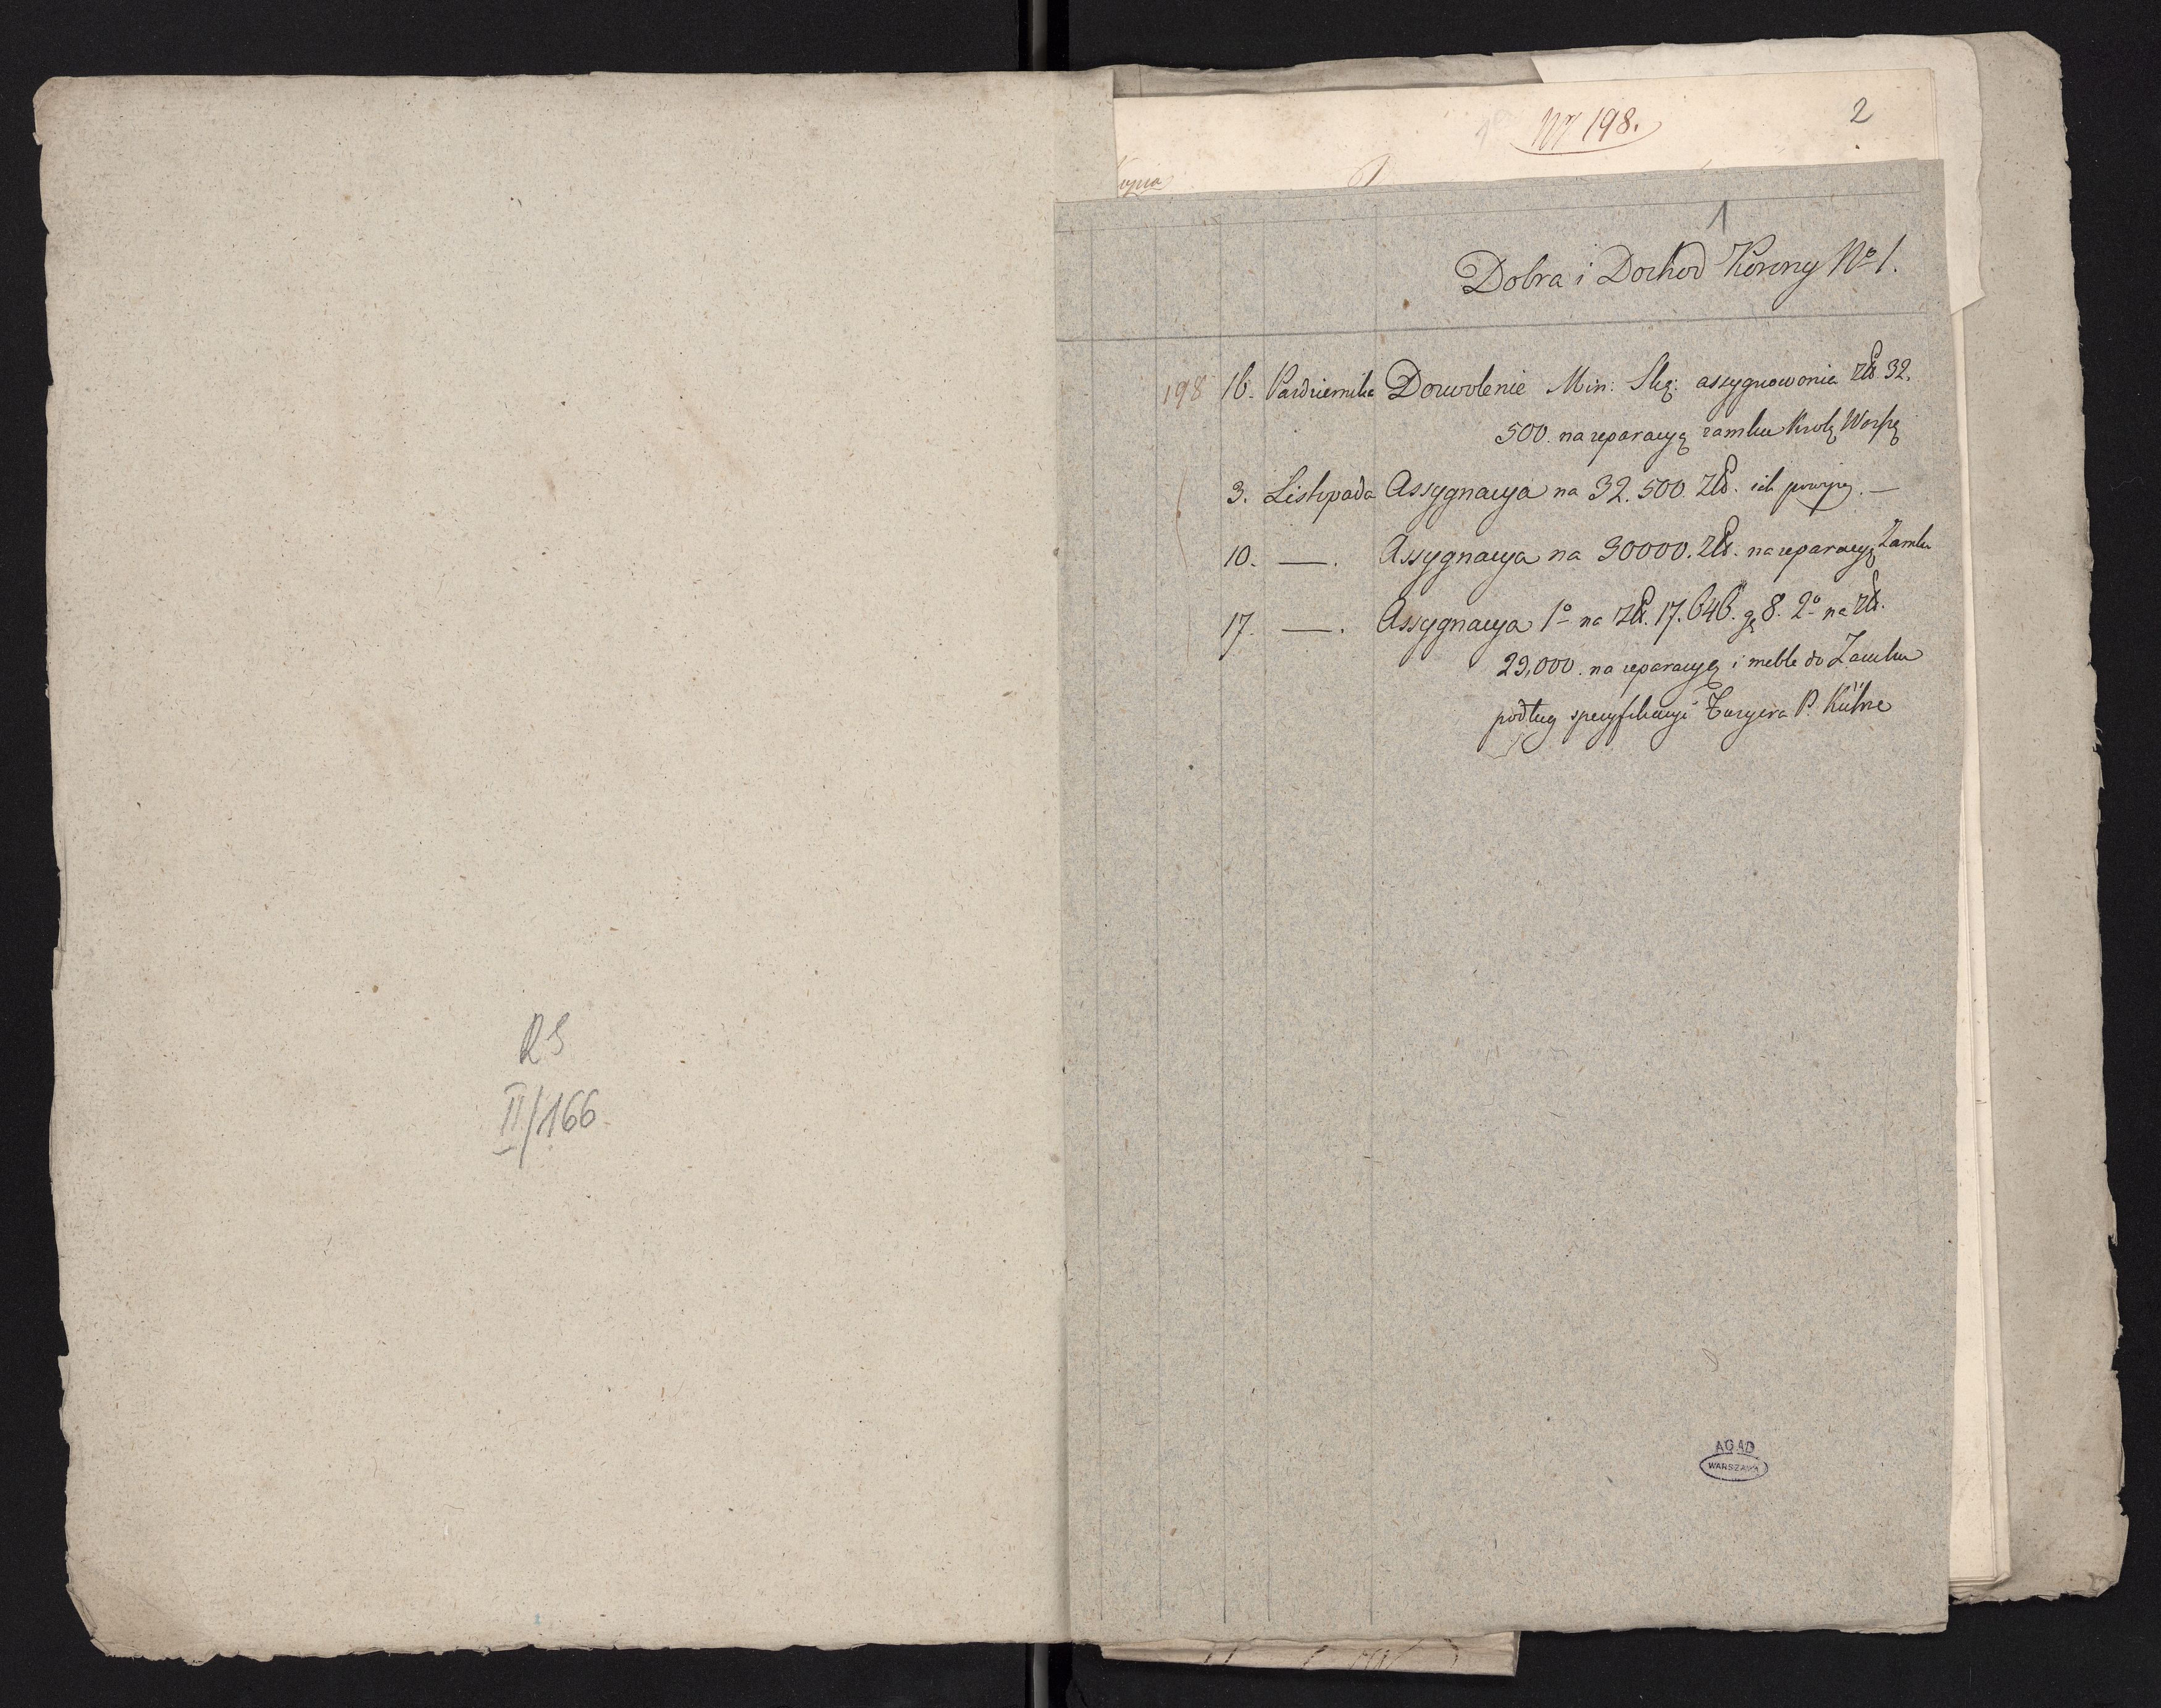 RS
II/166
Nr 198.
2
1
Dobra i Dochod Korony No 1.
198 16. Pazdziernika Dozwolenie Min: Skę: assygnowania złt. 32.
500. na reparacyą zamku Krolę Warszę
3. Listopada Assygnacya na 32.500. złt.
10. —. Assygnacya na 30000. złt. na reparacyą Zamku
17. —. Assygnacya 1o na złt. 17.646. gę 8. 2o na złt.
29,000. na reparacyą i meble do Zamku
podług specyfikacyi Furyera P. Kühne
AGAD
WARSZAWA